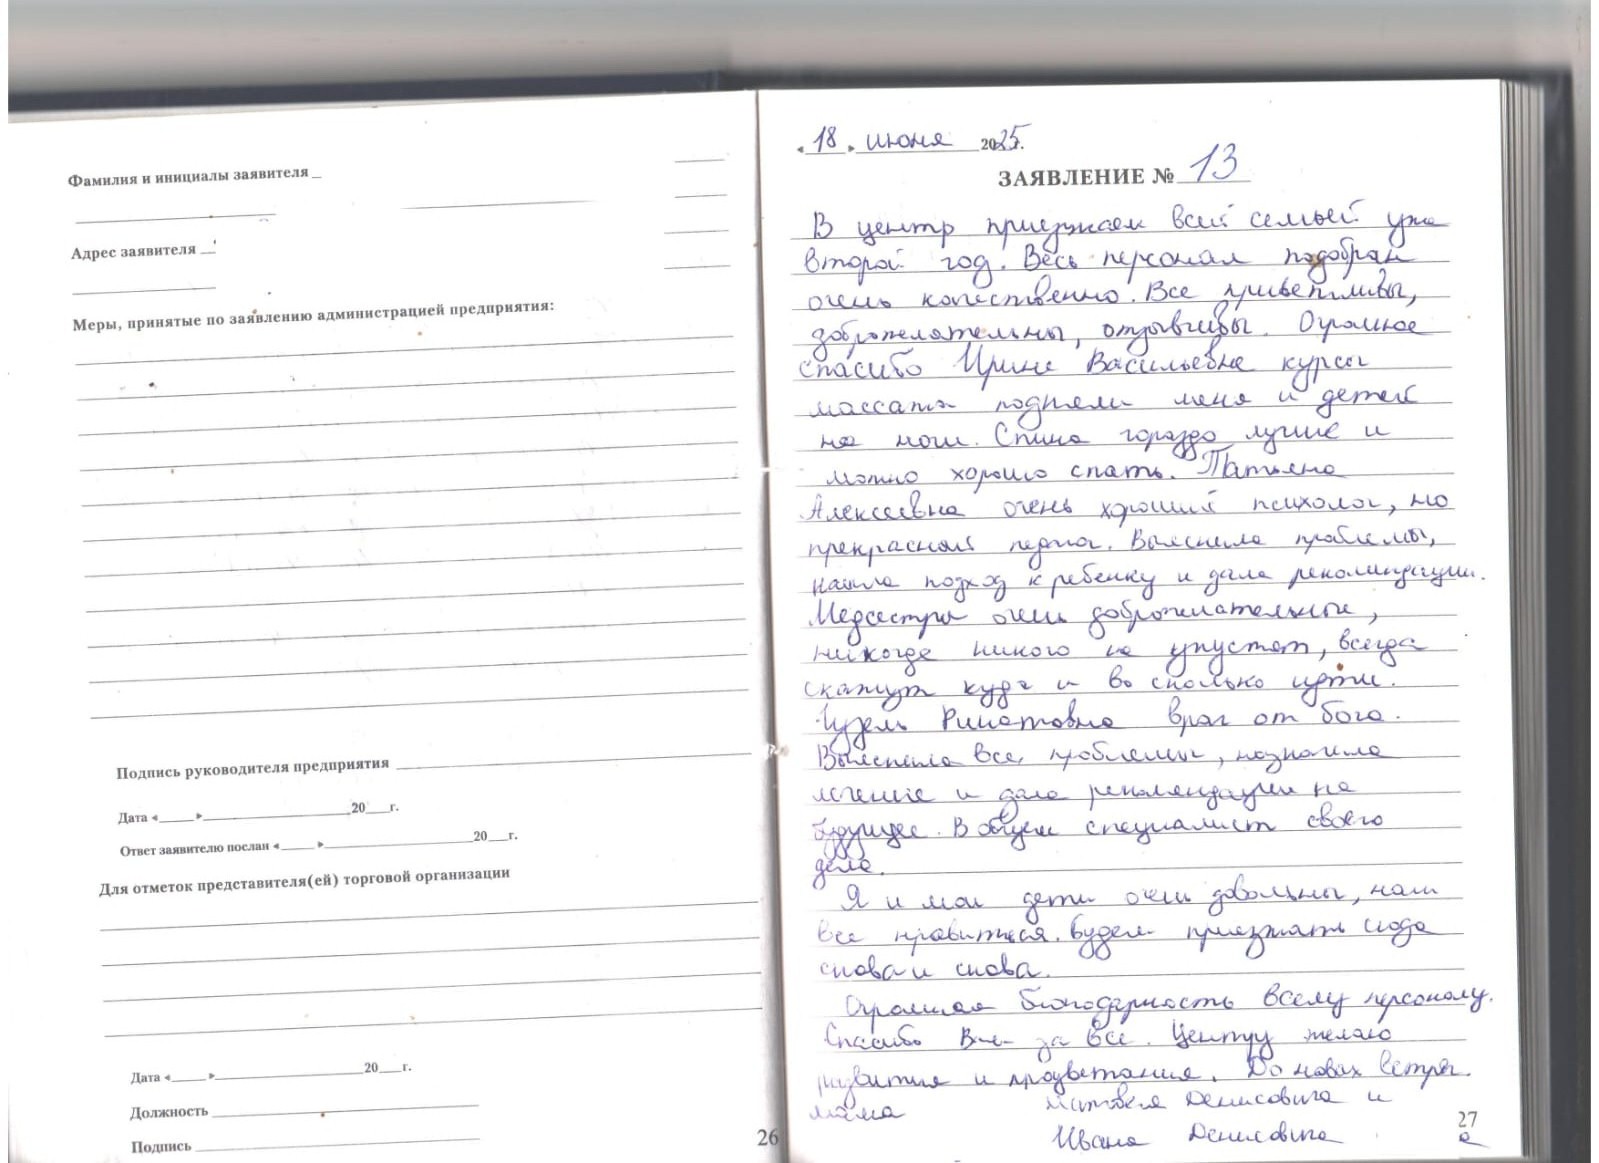 Фамилия и инициалы заявителя
Адрес заявителя
Меры, принятые по заявлению администрацией предприятия:
Подпись руководителя предприятия
Дата « » 20 г.
Ответ заявителю послан « » 20 г.
Для отметок представителя(ей) торговой организации
Дата « » 20 г.
Должность
Подпись
26
«18» июня 2025г.
ЗАЯВЛЕНИЕ № 13
В центр приезжаем всей семьей уже
второй год. Весь персонал подобран
очень качественно. Все приветливы,
доброжелательны, отзывчивы. Огромное
спасибо Ирине Васильевне курсы
массажа подняли меня и детей
на ноги. Спина гораздо лучше и
можно хорошо спать. Татьяна
Алексеевна очень хороший психолог, но
прекрасный педагог. Выяснила проблемы,
нашла подход к ребенку и дала рекомендации.
Медсестры очень доброжелательные,
никогда никого не упустят, всегда
скажут куда и во сколько идти.
Ринатовна врач от бога.
Выяснила все проблемы, назначила
лечение и дала рекомендации на
будущее. В общем специалист своего
дела.
Я и мои дети очень довольны, нам
все нравиться. Будем приезжать сюда
снова и снова.
Огромная благодарность всему персоналу.
Спасибо Вам за все. Центру желаю
развития и процветания. До новых встреч.
мама Матвея Денисовича и
Ивана Денисовича
27